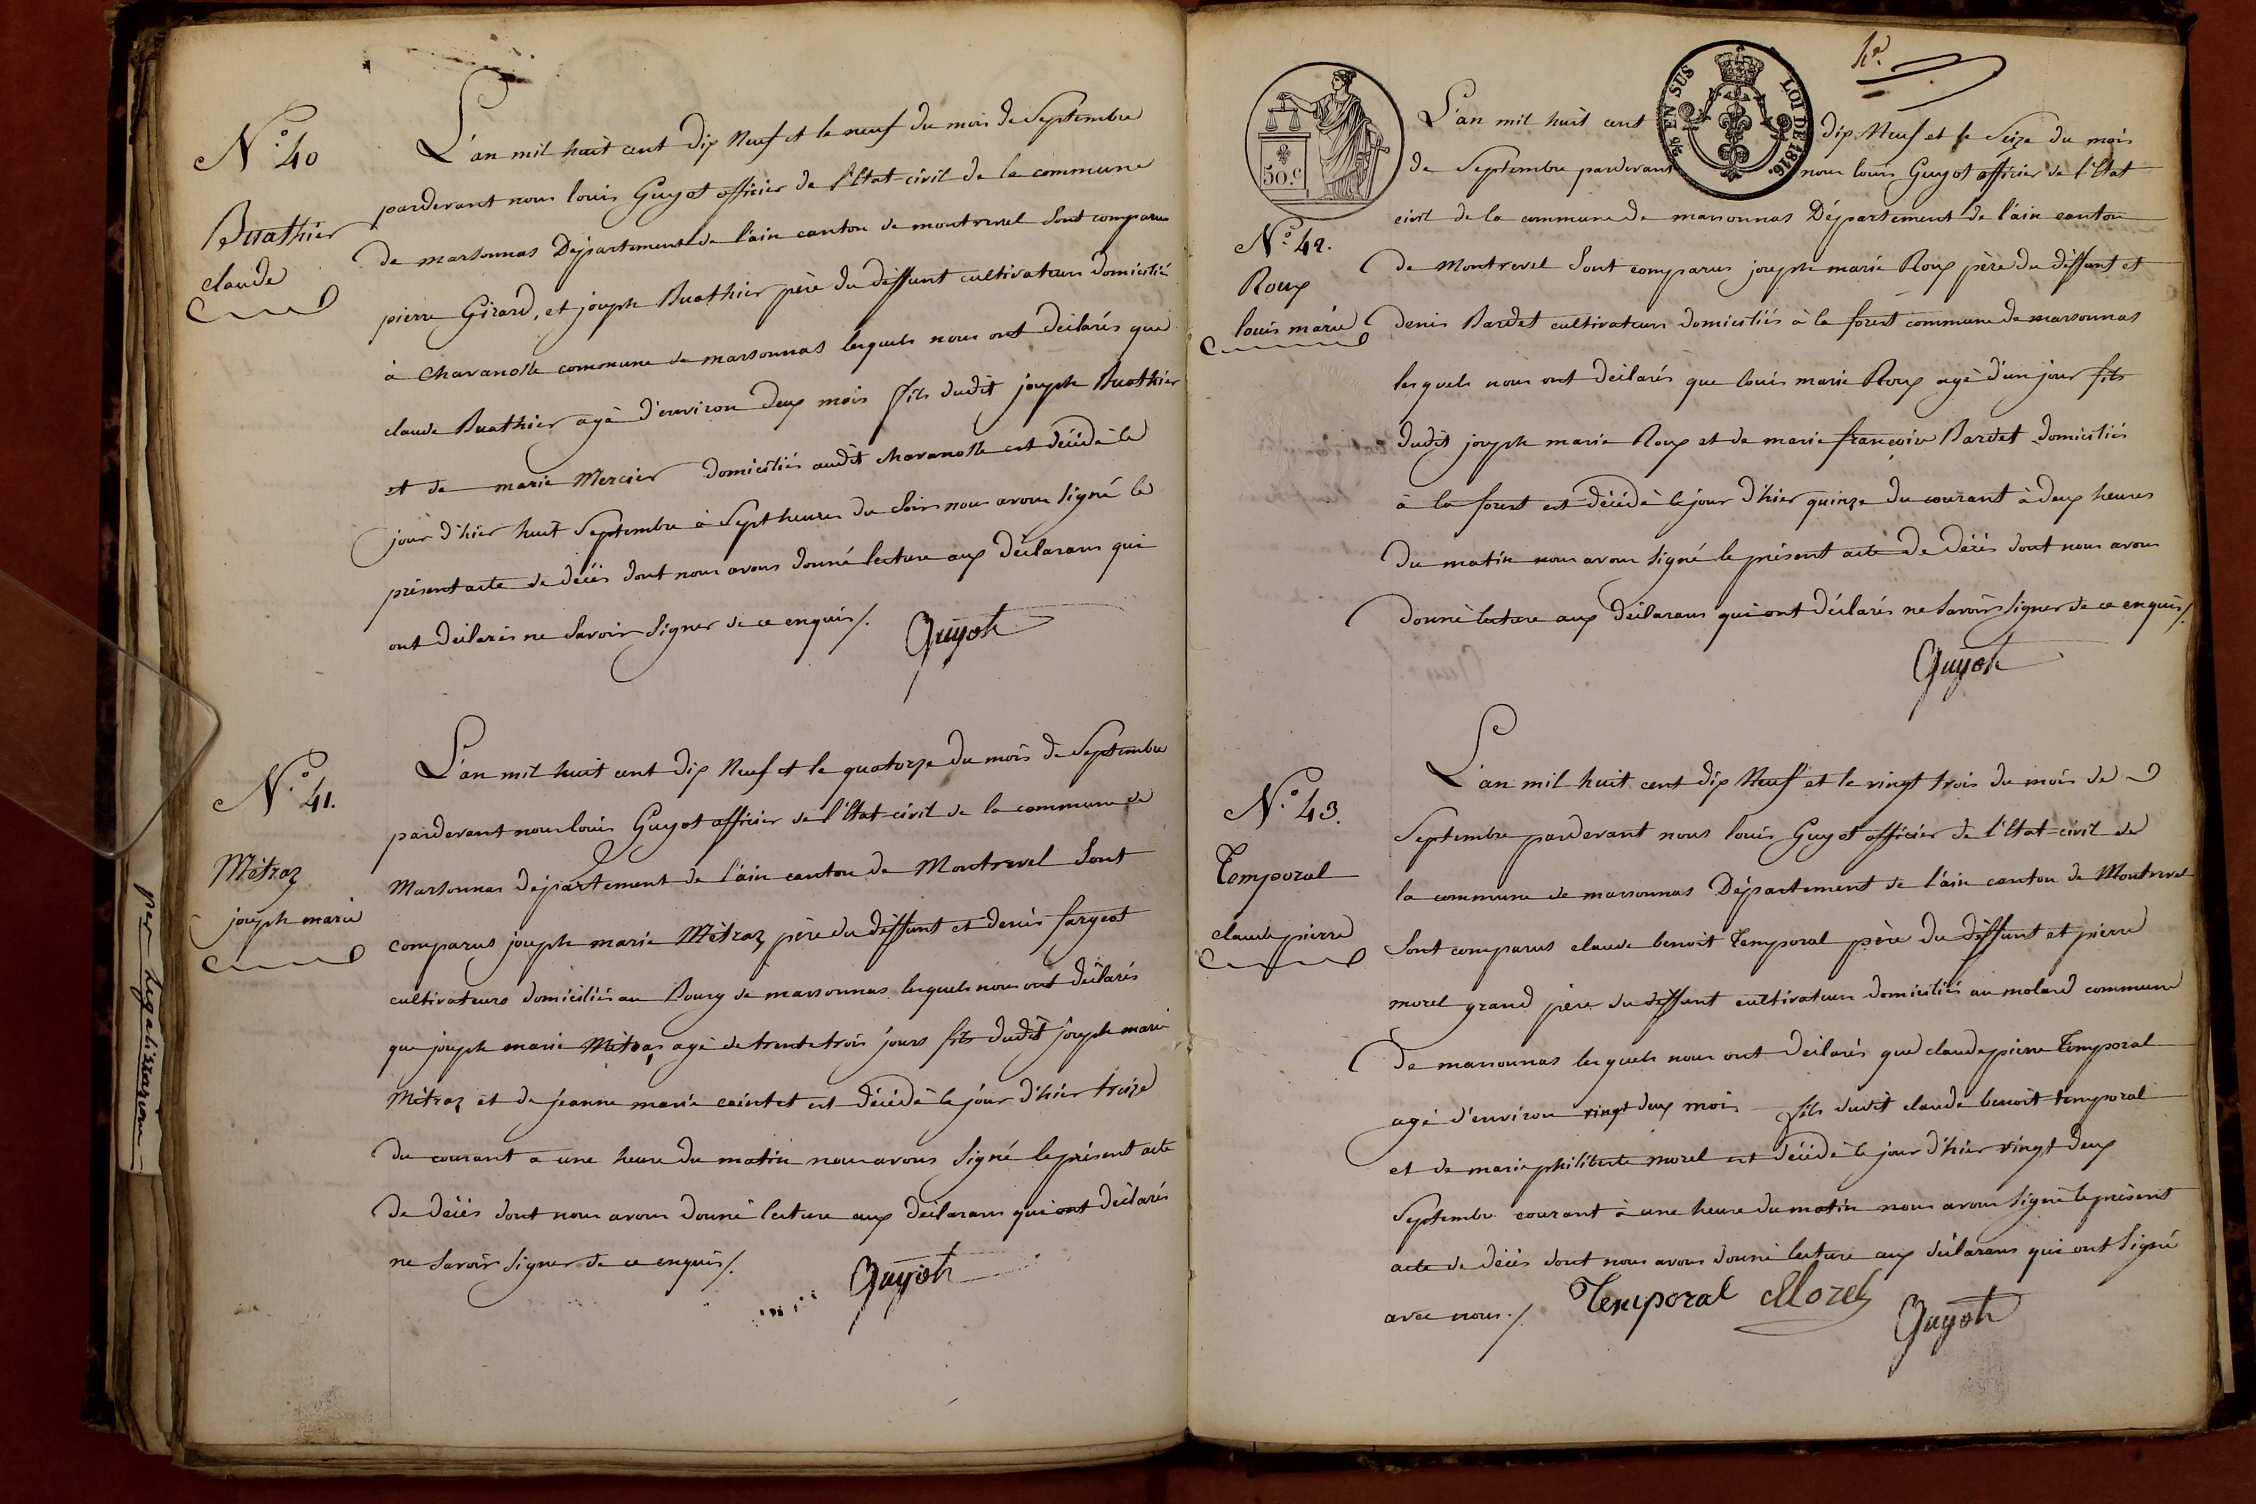 N.° 40
Buathier
claude
L'an mil huit cent dix Neuf et le neuf du mois de Septembre
pardevant nous louis Guyot officier de l'Etat-civil de la commune
de marsonnas Département de l'ain canton de montrevel Sont comparus
pierre Girard, et joseph Buathier père du deffunt cultivateurs domicilié
à Chavanosse commune de marsonnas lesquels nous ont declarés que
claude Buathier agé d'environ deux mois fils dudit joseph Buathier
et de marie Mercier domiciliés audit chavanosse est décédé le
jour d'hier huit Septembre à Sept heures du Soir nous avons Signé le
présent acte de décès dont nous avons donné lecture aux déclarans qui
ont declarés ne Savoir Signer de ce enquis /.
Guyot
N.° 41.
Métraz
joseph marie
L'an mil huit cent dix Neuf et le quatorze du mois de Septembre
pardevant nous louis Guyot officier de l'Etat-civil de la commune de
Marsonnas département de l'ain canton de Montrevel Sont
comparus joseph marie Métraz père du deffunt et denis fargeot
cultivateurs domiciliés au Bourg de marsonnas lesquels nous ont déclarés
que joseph marie Métraz agé de trente trois jours fils dudit joseph marie
Métraz et de jeanne marie cointet est décédé le jour d'hier treize
du courant a une heure du matin nous avons Signé le présent acte
de décès dont nous avons donné lecture aux declarans qui ont déclarés
ne Savoir Signer de ce enquis /.
Guyot
per Legalizzazione
50.c
¼ EN SUS
LOI DE 1816.
N.° 42.
Roux
louis marie
L'an mil huit cent dix-Neuf et le Seize du mois
de Septembre pardevant nous louis Guyot officier de l'Etat
civil de la commune de marsonnas Département de l'ain canton
de Montrevel Sont comparus joseph marie Roux père du deffunt et
denis Bardet cultivateurs domiciliés à la forest commune de marsonnas
lesquels nous ont déclarés que louis marie Roux agé d'un jour fils
dudit joseph marie Roux et de marie françoise Bardet domiciliés
à la forest est décédé le jour d'hier quinze du courant à deux heures
du matin nous avons signé le présent acte de décès dont nous avons
donné lecture aux déclarans qui ont déclarés ne Savoir Signer de ce enquis /.
Guyot
N.° 43.
Temporal
claude pierre
L'an mil huit cent dix Neuf et le vingt trois du mois de
Septembre pardevant nous louis Guyot officier de l'Etat-civil de
la commune de marsonnas Département de l'ain canton de Montrevel
Sont comparus claude benoit Temporal père du deffunt et pierre
morel grand père du deffunt cultivateurs domiciliés au molard commune
de marsonnas lesquels nous ont déclarés que claude pierre Temporal
agé d'environ vingt deux mois fils dudit claude benoit temporal
et de marie philiberte morel est décédé le jour d'hier vingt deux
Septembre courant à une heure du matin nous avons Signé le présent
acte de décès dont nous avons donné lecture aux déclarans qui ont Signé
avec nous. /.
Temporal Morel
Guyot